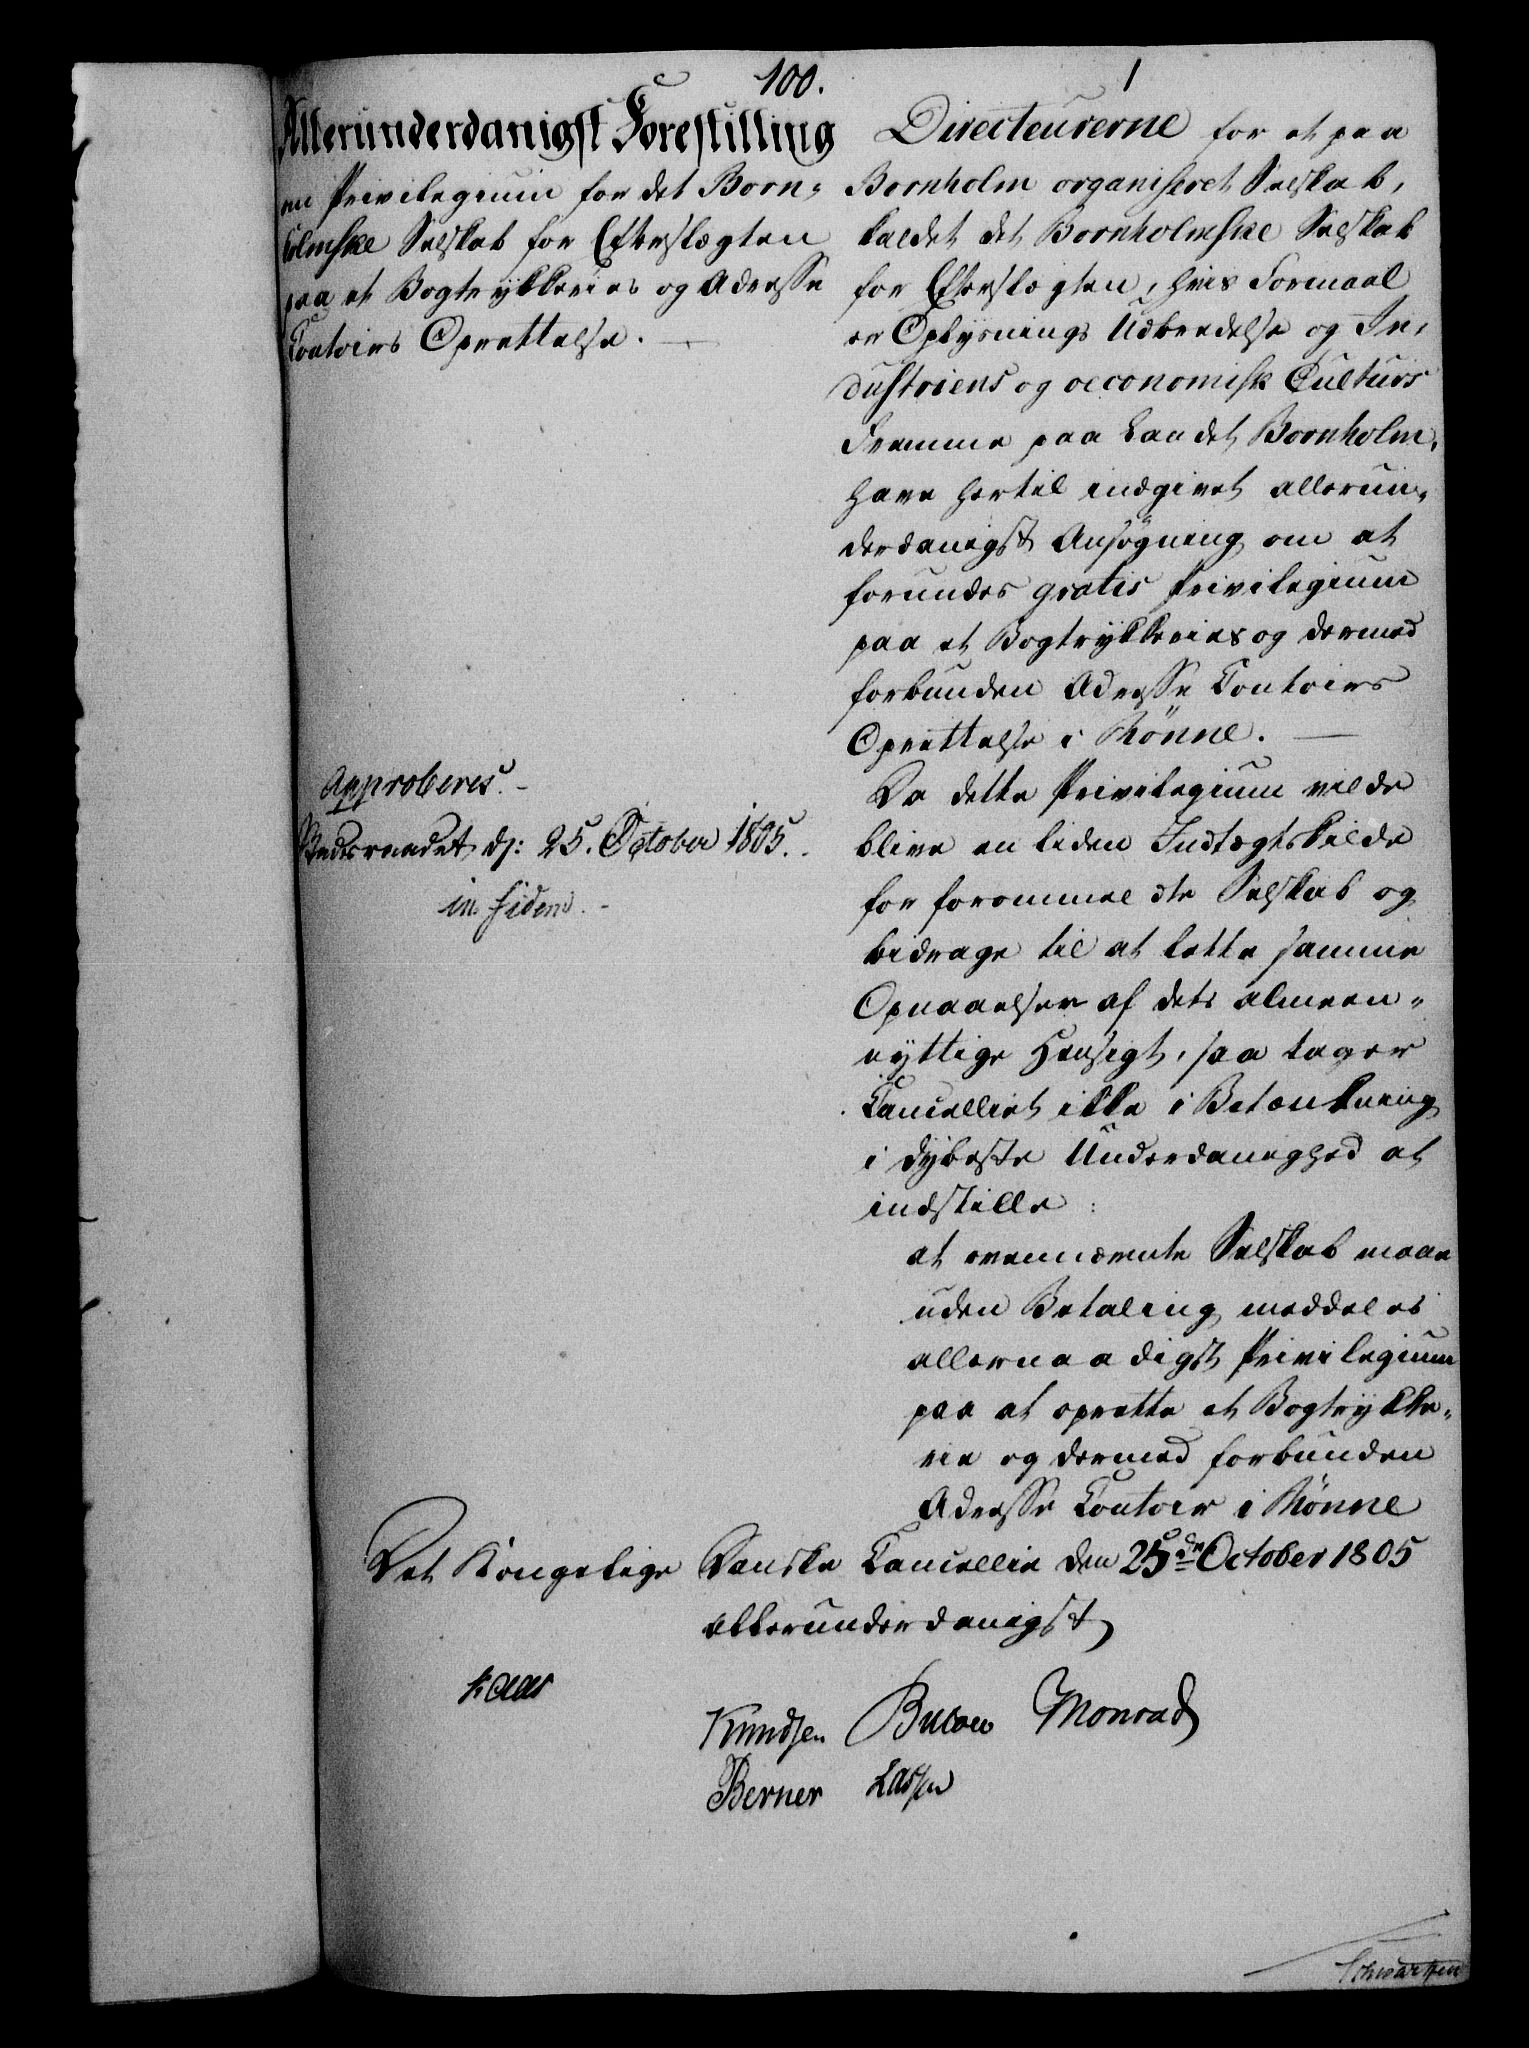 100.
1
Allerunderdanigst Forestilling
om Privilegium for det Born-
holmske Selskab for Efterslægten
paa et Bogtrykkeries og Adresse
Contoirs Oprettelse.
Approberes.
Statsraadet d: 25. October 1805.
in fidem.
Directeurerne for et paa
Bornholm organiseret Selskab,
kaldet det Bornholmske Selskab
for Efterslægten, hvis Formaal
er Oplysnings Udbredelse og In-
dustriens og oeconomisk Culturs
Fremme paa Landet Bornholm,
have hertil indgivet allerun-
derdanigst Ansøgning om at
forundes gratis Privilegium
paa et Bogtrykkeries og dermed
forbunden Adresse Contoirs
Oprettelse i Rönne.
Da dette Privilegium vilde
blive en liden Indtægtskilde
for forommeldte Selskab og
bidrage til at lette samme
Opnaaelsen af dets almeen-
nyttige Hensigt, saa tager
Cancelliet ikke i Betænkning
i dybeste Underdanighed at
indstille:
at ovennævnte Selskab maae
uden Betaling meddeles
allernaadigst Privilegium
paa at oprette et Bogtrykke-
rie og dermed forbunden
Adresse Contoir i Rönne
Det Kongelige Danske Cancellie den 25de October 1805
Allerunderdanigst
Kaas
Knudsen Bülow Monrad
Berner Lassen